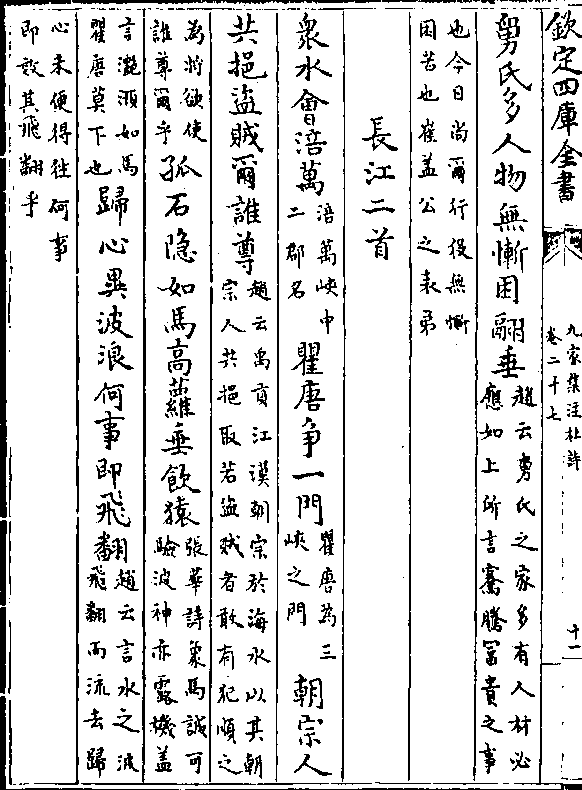 欽定四庫全書
九家集注杜詩
卷二十七
十一
舅氏多人物無慚困翮垂
趙云舅氏之家多有人材必
應如上所言騫騰富貴之事
也今日尚爾行役無慚
困苦也崔盖公之表弟
長江二首
衆水會涪萬
涪萬峽中
二郡名
瞿唐争一門
瞿唐為三
峽之門
朝宗人
共挹盜賊爾誰尊
趙云禹貢江漢朝宗於海水以其朝
宗人共挹取若盜賊者敢有犯順之
為將欲使
誰尊爾乎
孤石隠如馬高蘿垂飲猿
張華詩象馬誠可
驗波神亦露機盖
言灔澦如馬
瞿唐莫下也
歸心異波浪何事即飛翻
趙云言水之波
飛翻而流去歸
心未便得往何事
即效其飛翻乎